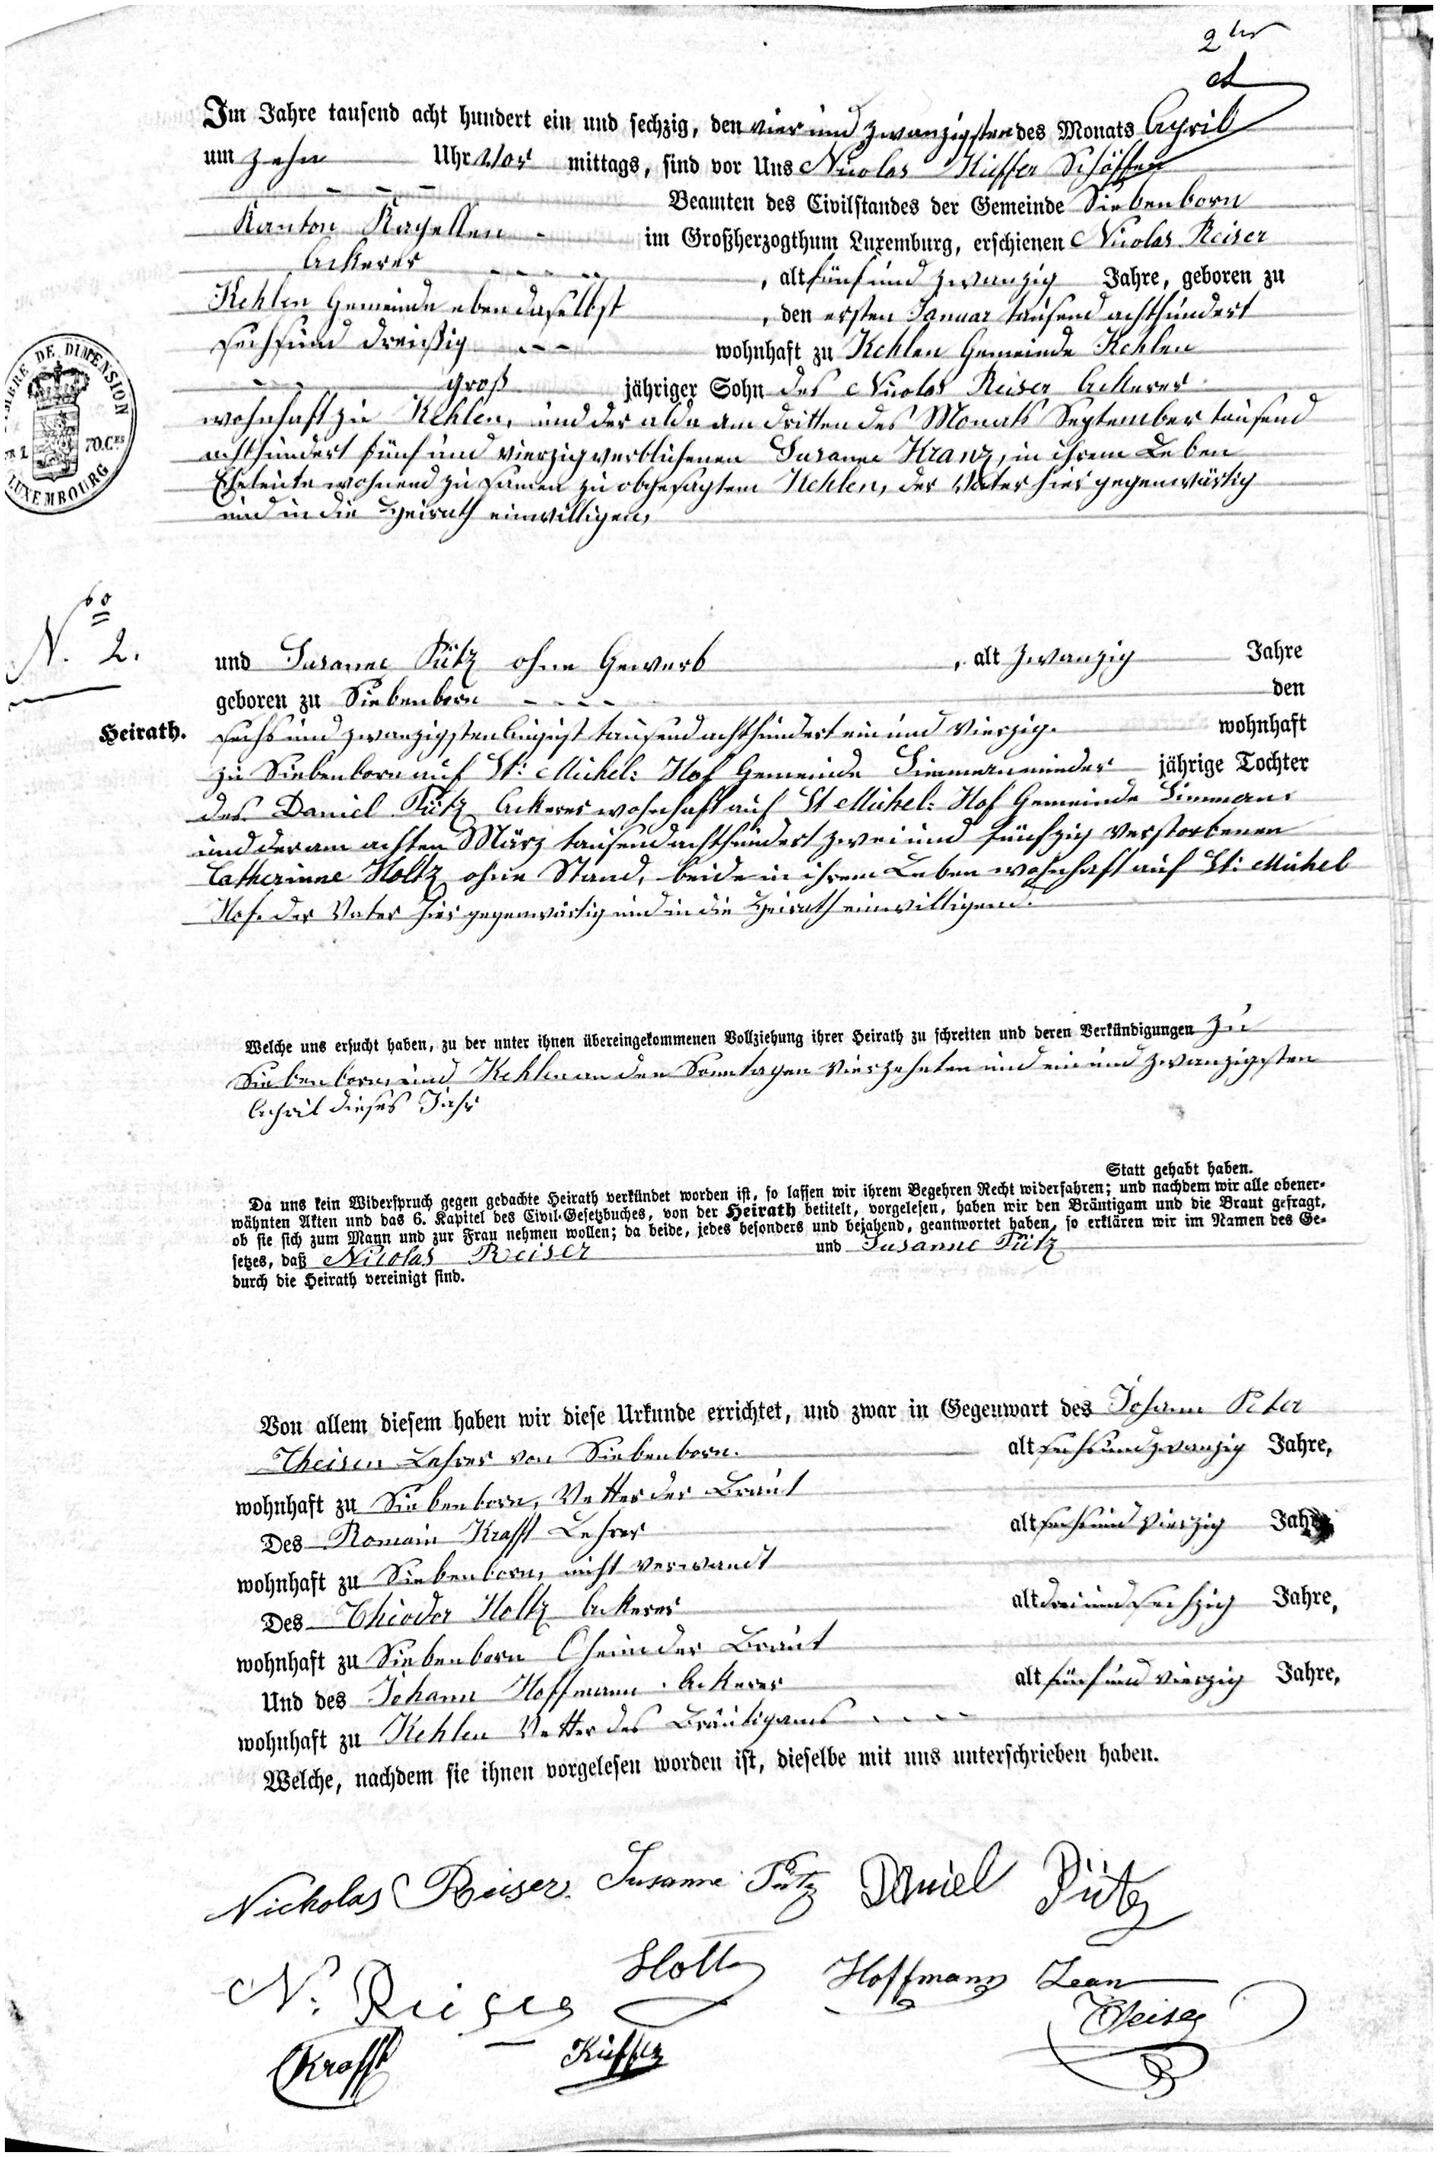 2ter
Im Jahre tausend acht hundert ein und sechzig, den vier und zwanzigsten des Monats April
um zehn Uhr vor mittags, sind vor Uns Nicolas Küffer Schöffen
Beamten des Civilstandes der Gemeinde Siebenborn
Kanton Kapellen im Großherzogthum Luxemburg, erschienen Nicolas Reiser
Ackerer, alt fünf und zwanzig Jahre, geboren zu
Kehlen Gemeinde ebendaselbst, den ersten Januar tausend achthundert
sechs und dreißig wohnhaft zu Kehlen Gemeinde Kehlen
groß jähriger Sohn des Nicolas Reiser Ackerer
wohnhaft zu Kehlen, und der alda am dritten des Monats September tausend
achthundert fünf und vierzig verblichenen Susanne Kranz, in ihrem Leben
Eheleute wohnend zusamen zu obgesagtem Kehlen, der Vater hier gegenwärtig
und in die Heirath einwilligen,
TIMBRE DE DIMENSION
70.Ces
LUXEMBOURG
No 2.
Heirath.
und Susanne Pütz ohne Gewerb, alt zwanzig Jahre
geboren zu Siebenborn den
sechs und zwanzigsten August tausend achthundert ein und vierzig. wohnhaft
zu Siebenborn auf St: Michel: Hof Gemeinde Simmern minder jährige Tochter
des Daniel Pütz Ackerer wohnhaft auf St Michel: Hof Gemeinde Simmern
und der am achten März tausend achthundert zwei und fünfzig verstorbenen
Catherinne Holtz ohne Stand, beide in ihrem Leben wohnhaft auf St: Michel
Hof. der Vater hier gegenwärtig und in die Heirath einwilligend.
Welche uns ersucht haben, zu der unter ihnen übereingekommenen Vollziehung ihrer Heirath zu schreiten und deren Verkündigungen zu
Siebenborn, und Kehlen an den Sonntagen vierzehnten und ein und zwanzigsten
April dieses Jahr
Statt gehabt haben.
Da uns kein Widerspruch gegen gedachte Heirath verkündet worden ist, so lassen wir ihrem Begehren Recht widerfahren; und nachdem wir alle obener-
wähnten Akten und das 6. Kapitel des Civil-Gesetzbuches, von der Heirath betitelt, vorgelesen, haben wir den Bräutigam und die Braut gefragt,
ob sie sich zum Mann und zur Frau nehmen wollen; da beide, jedes besonders und bejahend, geantwortet haben, so erklären wir im Namen des Ge-
setzes, daß Nicolas Reiser und Susanne Pütz
durch die Heirath vereinigt sind.
Von allem diesem haben wir diese Urkunde errichtet, und zwar in Gegenwart des Johann Peter
Theisen Lehrer von Siebenborn. alt sechs und zwanzig Jahre,
wohnhaft zu Siebenborn, Vetter der Braut
Des Romain Krafft Lehrer alt sechs und vierzig Jahre
wohnhaft zu Siebenborn, nicht verwandt
Des Theodor Holtz Ackerer alt drei und sechzig Jahre,
wohnhaft zu Siebenborn Oheim der Braut
Und des Johann Hoffmann Ackerer alt fünf und vierzig Jahre,
wohnhaft zu Kehlen Vetter des Bräutigams
Welche, nachdem sie ihnen vorgelesen worden ist, dieselbe mit uns unterschrieben haben.
Nickolas Reiser. Susanne Pütz Daniel Pütz
N. Reiser Holtz Hoffmann Jean
Theisen
Krafft Küffer